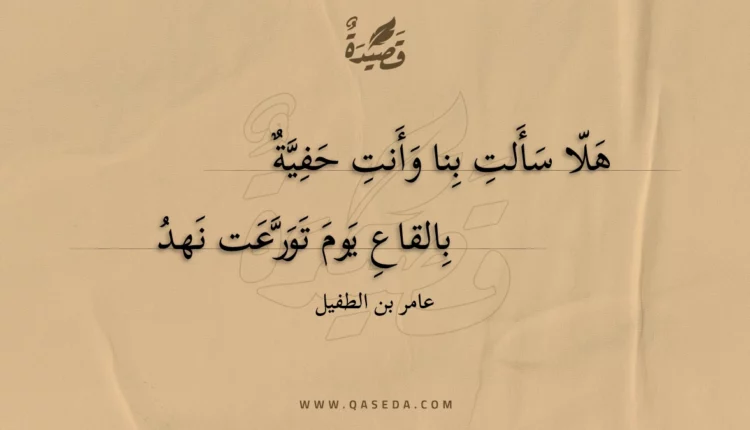 قَصِيدَةٌ
هَلّا سَأَلتِ بِنا وَأَنتِ حَفِيَّةٌ
بِالقاعِ يَومَ تَوَرَّعَت نَهدُ
عامر بن الطفيل
WWW.QASEDA.COM